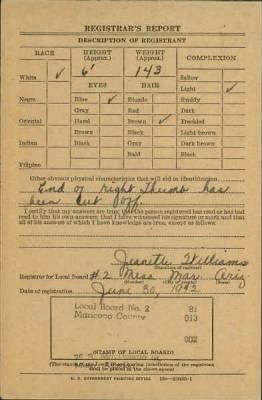 REGISTRAR'S REPORT
DESCRIPTION OF REGISTRANT
RACE HEIGHT (Approx.) WEIGHT (Approx.) COMPLEXION
White ✓ 6' 143 Sallow
EYES HAIR Light ✓
Negro Blue ✓ Blonde Ruddy
Gray Red Dark
Oriental Hazel Brown ✓ Freckled
Brown Black Light brown
Indian Black Gray Dark brown
Bald Black
Filipino
Other obvious physical characteristics that will aid in identification
End of right thumb has
been cut off.
I certify that my answers are true; that the person registered has read or has had
read to him his own answers; that I have witnessed his signature or mark and that
all of his answers of which I have knowledge are true, except as follows:
Jeanette Williams
(Signature of registrar)
Registrar for Local Board #2 Ariz.
(Number) (City or county) (State)
Date of registration June 30, 1942
Local Board No. 2 81
Maricopa County 013
002
(STAMP OF LOCAL BOARD)
(The stamp of the Local Board having jurisdiction of the registrant
shall be placed in the above space)
U. S. GOVERNMENT PRINTING OFFICE